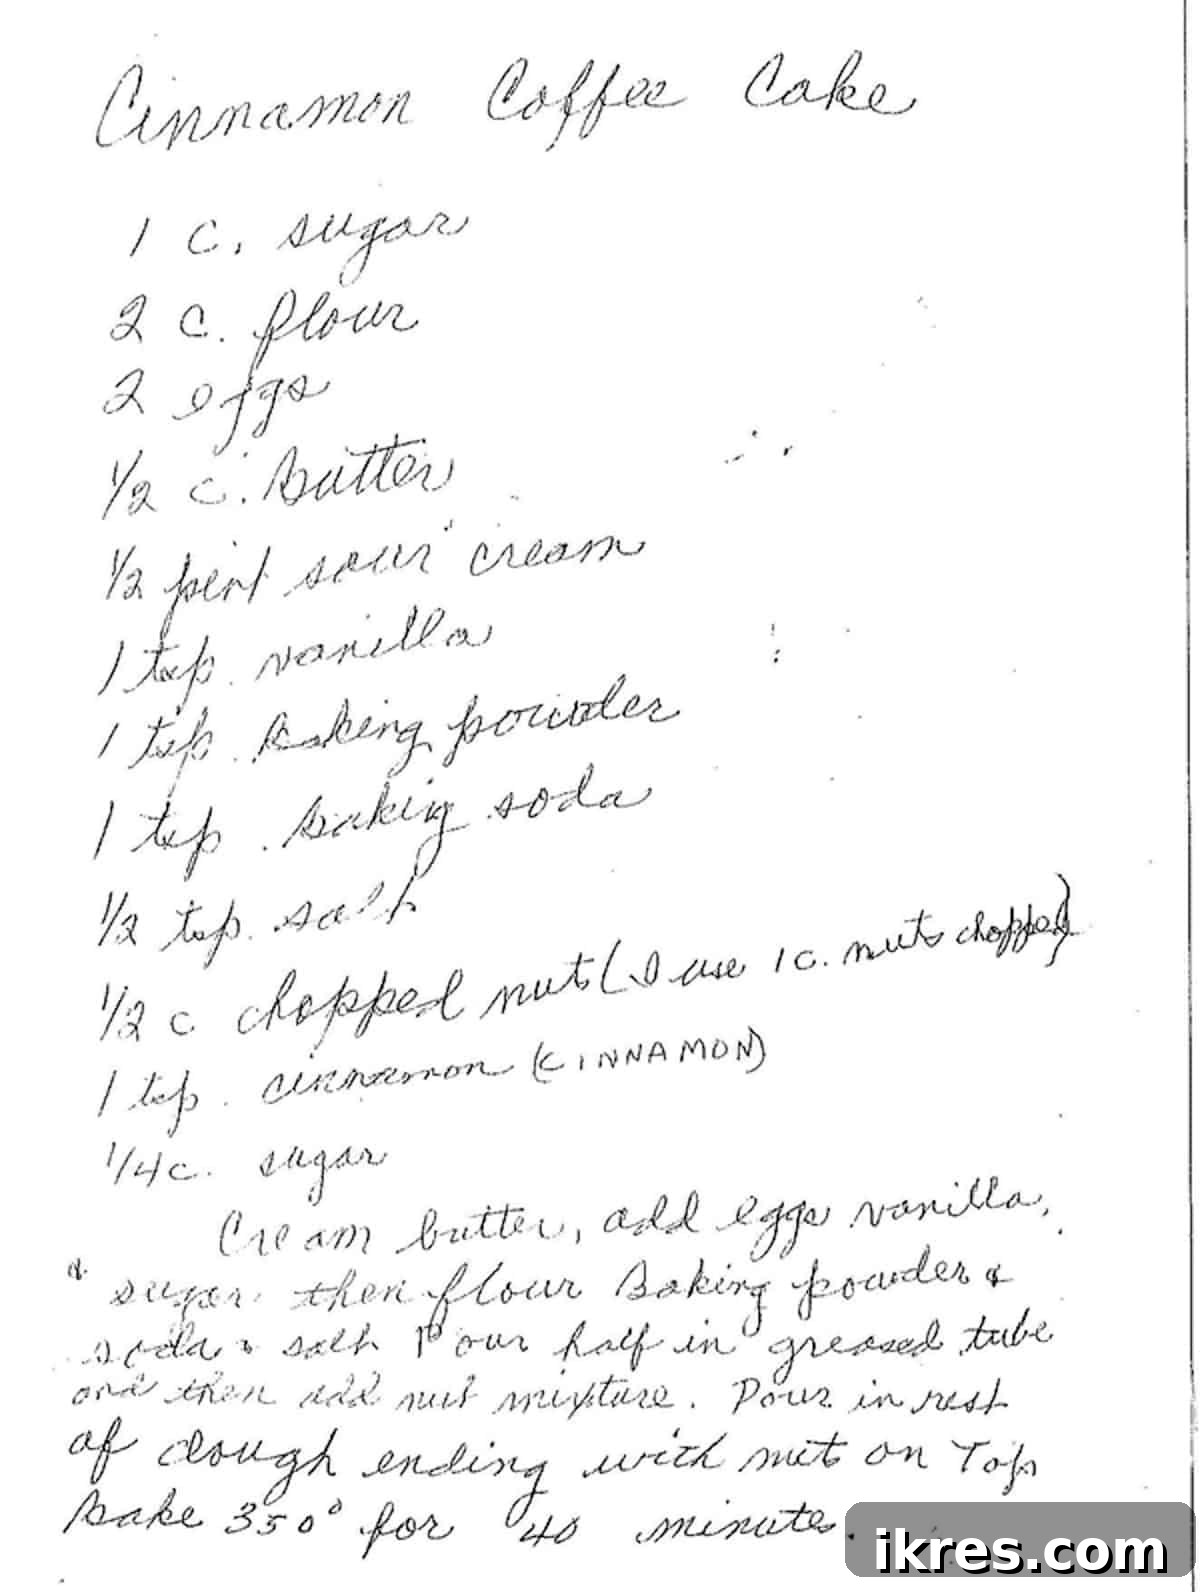 Cinnamon Coffee Cake
1 c. sugar
2 c. flour
2 eggs
1/2 c. butter
1/2 pint sour cream
1 tsp. vanilla
1 tsp. Baking powder
1 tsp. baking soda
1/2 tsp. salt
1/2 c chopped nuts (I use 1 c. nuts chopped)
1 tsp. cinnamon (CINNAMON)
1/4 c. sugar
Cream butter, add eggs vanilla,
& sugar then flour Baking powder &
soda & salt Pour half in greased tube
and then add nut mixture. Pour in rest
of dough ending with nuts on Top
Bake 350° for 40 minutes.
ikres.com